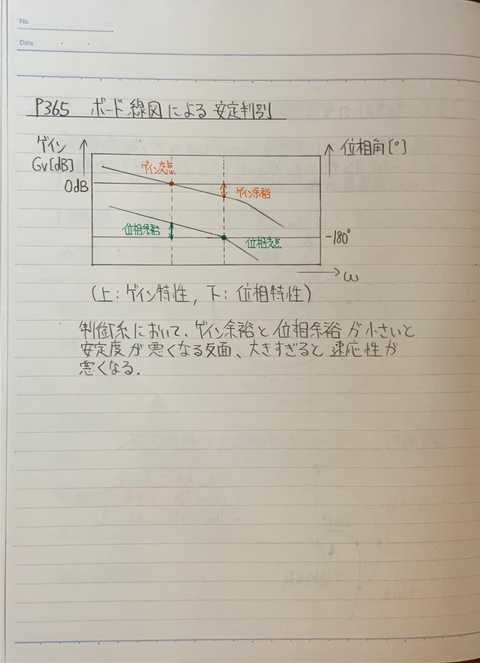 No.
Date
P365 ボード線図による安定判別
ゲイン
Gv[dB]
位相角[°]
ゲイン交点
0dB
ゲイン余裕
位相余裕
位相交点
-180°
ω
(上:ゲイン特性, 下:位相特性)
制御系において、ゲイン余裕と位相余裕が小さいと
安定度が悪くなる反面、大きすぎると速応性が
悪くなる.